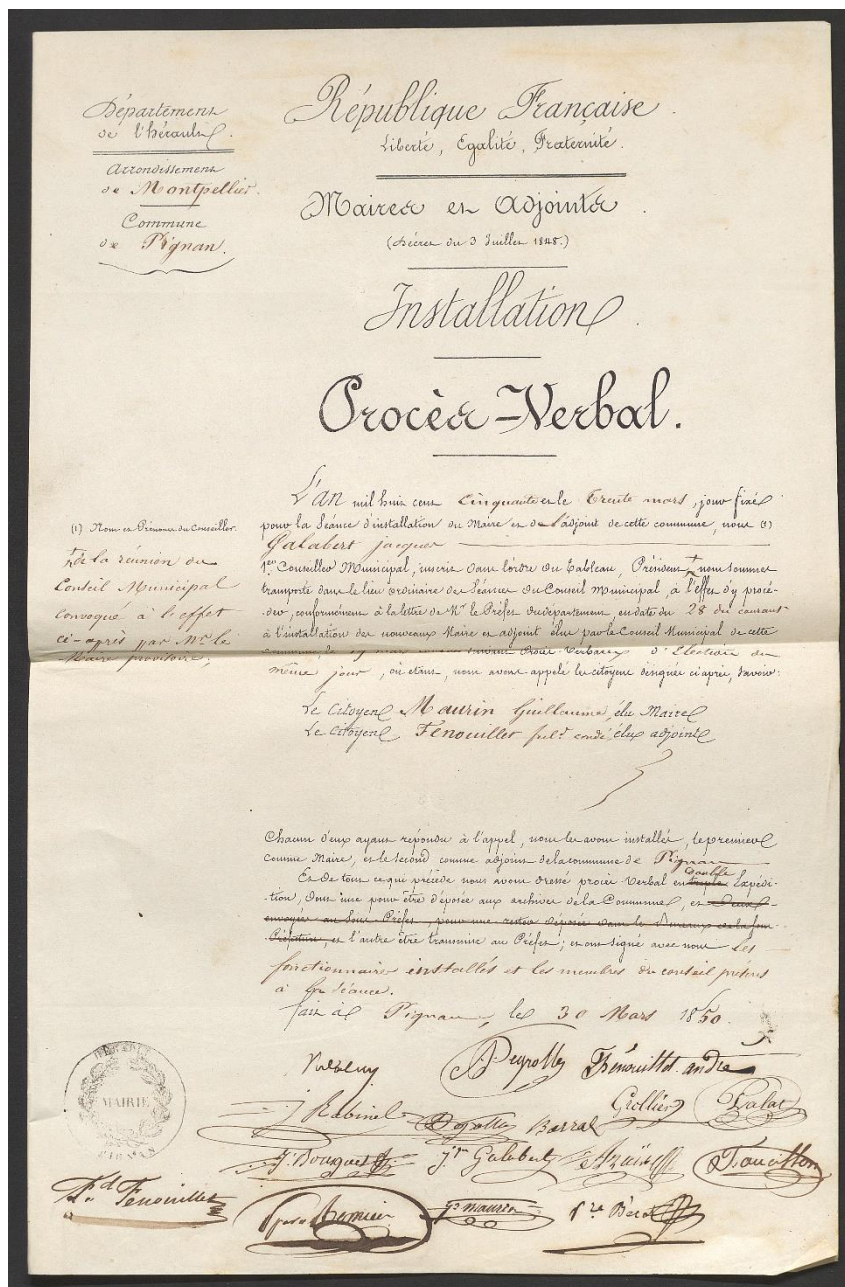 Département
de l'hérault.
Arrondissement
de Montpellier.
Commune
de Pignan.
République Française.
Liberté, Egalité, Fraternité.
Maires et Adjoints.
(Décret du 3 Juillet 1848.)
Installation.
Procès-Verbal.
(1) Nom et Prénoms du Conseiller.
de la réunion du
Conseil Municipal
convoqué à l'effet
ci-après par Mr. le
Maire provisoire;
L'an mil huit cent cinquante et le trente mars, jour fixé
pour la Séance d'installation du Maire et de l'adjoint de cette commune, nous (1)
Galabert jacques
1er Conseiller Municipal, inscrit dans l'ordre du Tableau, Président nous sommes
transporté dans le lieu ordinaire des Séances du Conseil Municipal, à l'effet d'y procé-
der, conformément à la lettre de Mr. le Préfet du département en date du 28 du courant
à l'installation des nouveaux Maire et adjoint élus par le Conseil Municipal de cette
commune, le 19 mars suivant Procès-Verbaux d'Élection du
même jour, où étant, nous avons appelé les citoyens désignés ci après, Savoir:
Le Citoyen Maurin Guillaume, élu Maire
Le Citoyen Fenouillet élu adjoint
Chacun d'eux ayant répondu à l'appel, nous les avons installés, le premier
comme Maire, et le second comme adjoint de la commune de Pignan
double
Et de tout ce qui précède nous avons dressé procès-Verbal en triple Expédi-
tion, dont une pour être déposée aux archives de la Commune, et deux
envoyées au Sous-Préfet, pour une rester déposée dans les Bureaux de la Sous-
Préfecture, et l'autre être transmise au Préfet; et ont signé avec nous les
fonctionnaires installés et les membres du conseil présens
à la séance.
fait à Pignan, le 30 Mars 1850.
Peyrottes Fénouillet andré
J Rabinel Barral Grollier Balat
J. Bouques J. Galabert
MAIRIE
PIGNAN
Fd Fenouillet
Ge Maurin